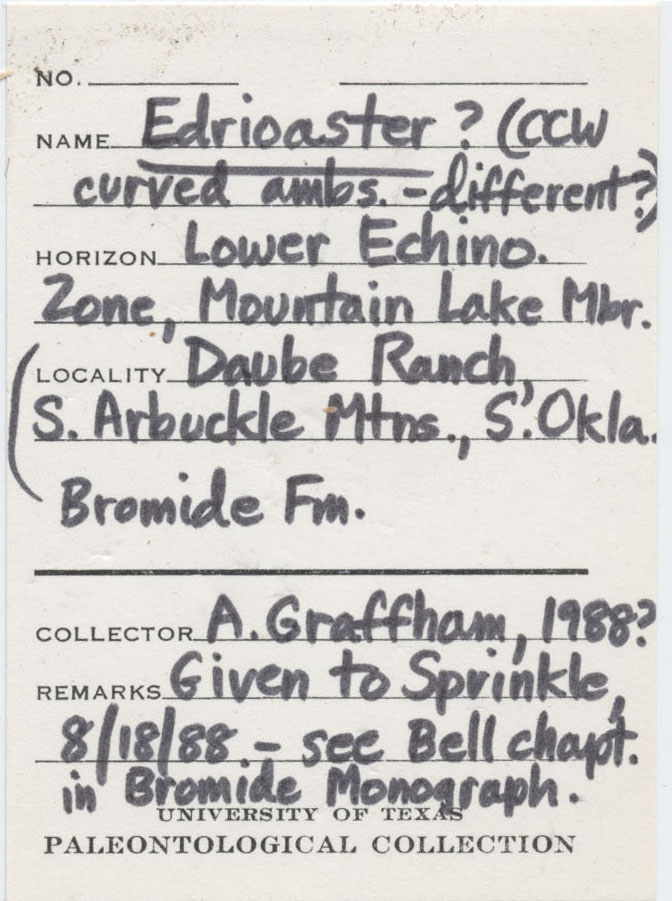 NO.
NAME Edrioaster ? (CCW
curved ambs. - different?)
HORIZON Lower Echino.
Zone, Mountain Lake Mbr.
LOCALITY Daube Ranch,
S. Arbuckle Mtns., S. Okla.
Bromide Fm.
COLLECTOR A. Graffham, 1988?
REMARKS Given to Sprinkle,
8/18/88 - see Bell chapt.
in Bromide Monograph.
UNIVERSITY OF TEXAS
PALEONTOLOGICAL COLLECTION